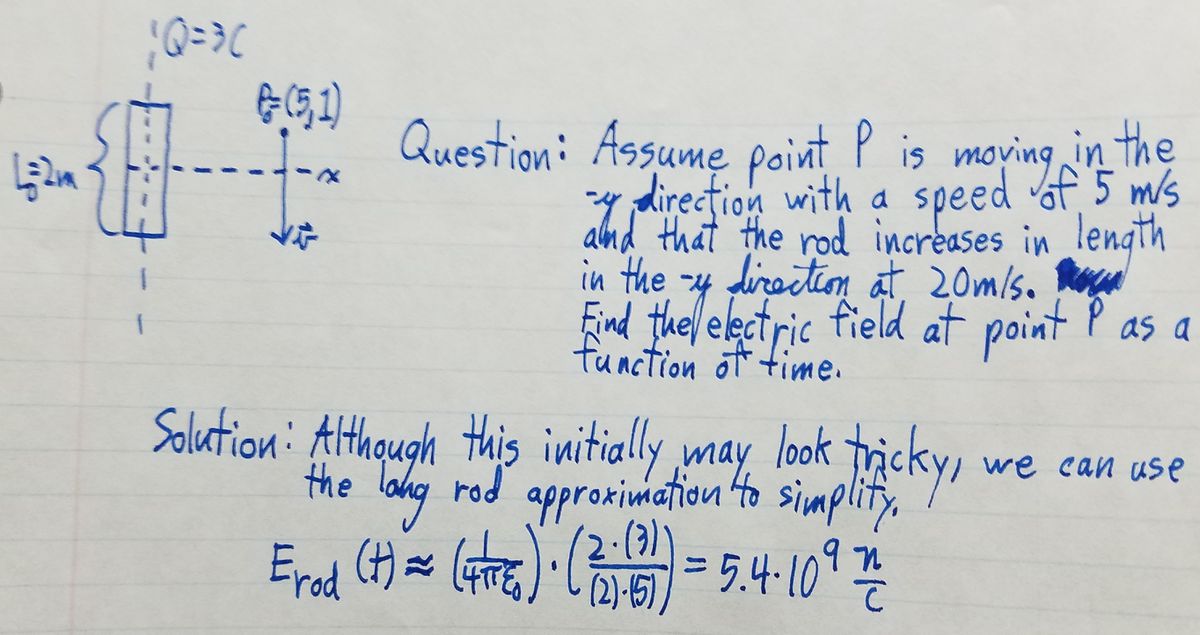 Q=3C
P₀=(5,1)
L₀=2m
x
v⃗
Question: Assume point P is moving in the
-y direction with a speed of 5 m/s
and that the rod increases in length
in the -y direction at 20m/s.
Find the electric field at point P as a
function of time.
Solution: Although this initially may look tricky, we can use
the long rod approximation to simplify.
E_rod (t) ≈ (1/(4πε₀)) · (2·(3)/((2)·(5))) = 5.4·10⁹ n/C